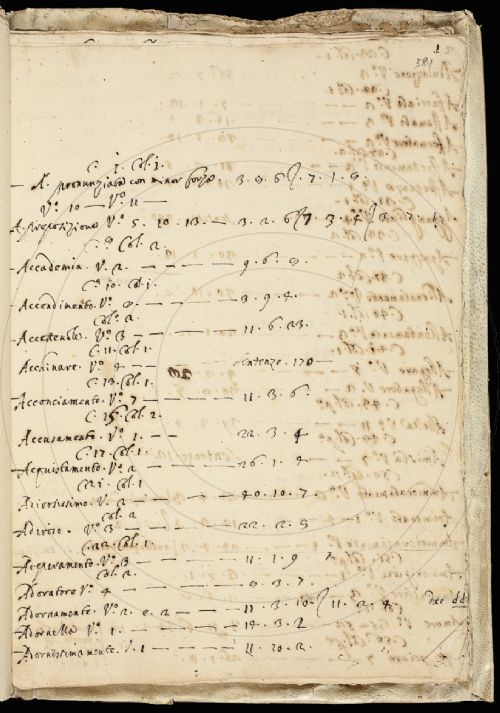 1
381
C. 1. Col. 1.
A. pronunziato con minor forza 3. 9. 6 /. 7. 1. 9.
V.º 10 — V.º 11 —
A. prepotizione V.º 5. 10. 13. — 3. 2. 6 7. 3. 4 / 3. 7. 1.
C. 9 Col. 2.
Accademia. V. 2. — — — — 9. 6. 9.
C. 10. Col. 1.
Accendimento. V.º 9. — — — 3. 9. 4.
Col. 2.
V.º 3 — — — — 11. 6. 23.
C. 11. Col. 1.
Acchinare. V.º 4 — — Sentenze. 170 —
C. 13. Col. 1.
Acconciamento. V.º 7 — — — 11. 3. 6.
C. 15. Col. 2.
Accusamento. V.º 1. — — 22. 3. 4
C. 17. Col. 1.
Acquistamento. V.º 2 — — — 26. 1. 4
C. 21. Col. 1
V. 2 — — — 40. 10. 7.
Col. 2
V.º 3 — — — 22. 2. 5
C. 22. Col. 1.
V.º 3 — — — 11. 1. 9
Col. 2.
Adoratore V.º 4 — — — 9. 3. 7.
Adornamento. V.º 2. e. 2 — — — 11. 3. 10. / 11. 2. 4.
Adornello V.º 1. — — — 14. 3. 2
Adornissimamente. V. 1 — — — 11. 20. 2.